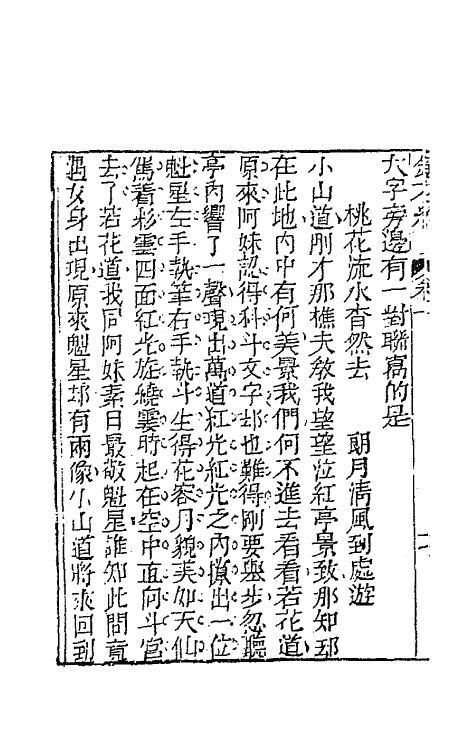 大字旁邊有一對聯寫的是
桃花流水杳然去　朗月清風到處遊
小山道剛才那樵夫敎我望望泣紅亭景致那知却
在此地內中有何美景我們何不進去看看若花道
原來阿妹認得科斗文字却也難得剛要舉步忽聽
亭內響了一聲現出萬道紅光紅光之內撺出一位
魁星左手執筆右手執斗生得花容月貌美如天仙
駕着彩雲四面紅光旋繞霎時起在空中直向斗宮
去了若花道我同阿妹素日最敬魁星誰知此間竟
遇女身出現原來魁星却有兩像小山道將來回到